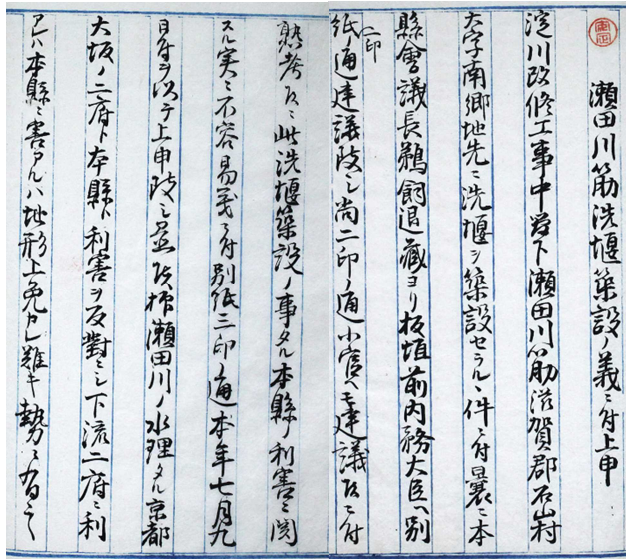 瀬田川筋洗堰築設ノ義ニ付上申
淀川改修工事中管下瀬田川筋滋賀郡石山村
大字南郷地先ニ洗堰ヲ築設セラルヽ件ニ付曩ニ本
縣會議長鵜飼退藏ヨリ板垣前内務大臣ヘ別
紙一印ノ通建議致シ尚二印ノ通小官ヘモ建議致候ニ付
熟考候ニ此洗堰築設ノ事タル本縣ノ利害ニ関
スル実ニ不容易義ニ付別紙三印ノ通本年七月九
日付ヲ以テ上申致シ置候抑瀬田川ノ水理タル京都
大坂ノ二府ト本縣ト利害ヲ反對ニシ下流二府ニ利
アレハ本縣ニ害アルハ地形上免レ難キ勢ニ有之